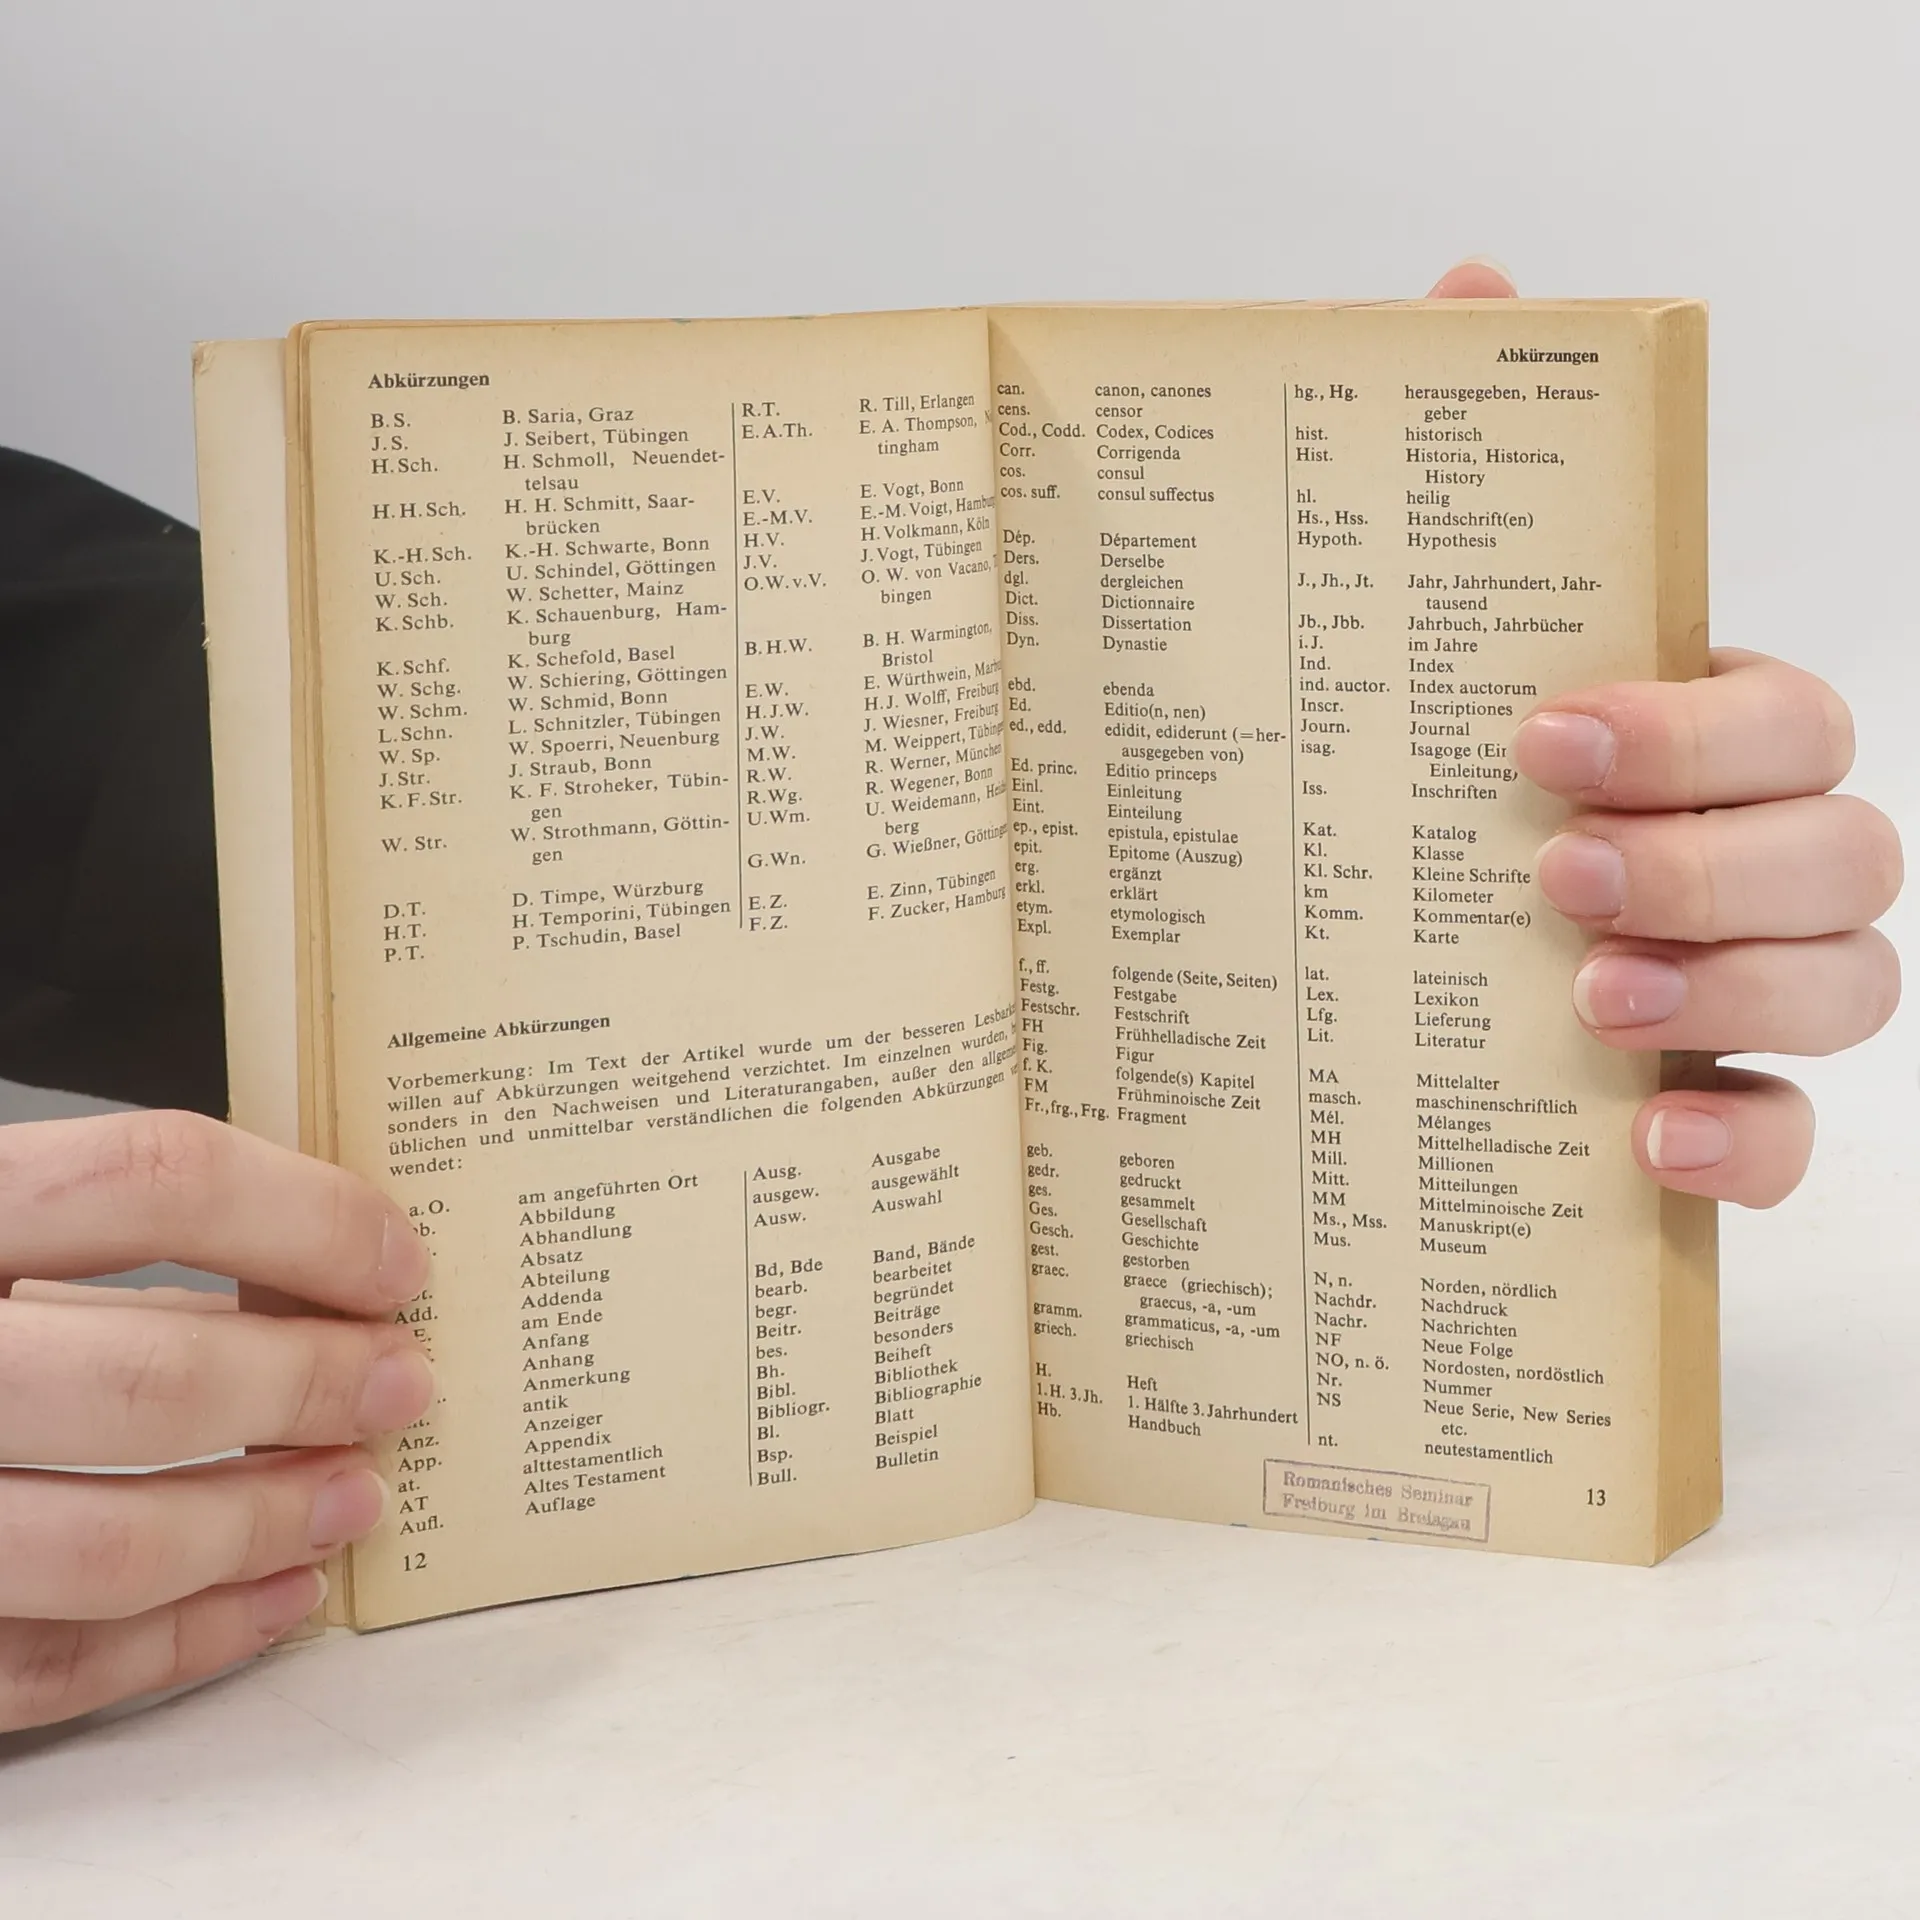 Abkürzungen
B.S. B. Saria, Graz
J.S. J. Seibert, Tübingen
H.Sch. H. Schmoll, Neuendet-
telsau
H.H.Sch. H. H. Schmitt, Saar-
brücken
K.-H.Sch. K.-H. Schwarte, Bonn
U.Sch. U. Schindel, Göttingen
W.Sch. W. Schetter, Mainz
K.Schb. K. Schauenburg, Ham-
burg
K.Schf. K. Schefold, Basel
W. Schg. W. Schiering, Göttingen
W. Schm. W. Schmid, Bonn
L.Schn. L. Schnitzler, Tübingen
W. Sp. W. Spoerri, Neuenburg
J.Str. J. Straub, Bonn
K.F.Str. K. F. Stroheker, Tübin-
gen
W. Str. W. Strothmann, Göttin-
gen
D.T. D. Timpe, Würzburg
H.T. H. Temporini, Tübingen
P.T. P. Tschudin, Basel
R.T. R. Till, Erlangen
E.A.Th. E. A. Thompson,
tingham
E.V. E. Vogt, Bonn
E.-M.V. E.-M. Voigt,
H.V. H. Volkmann, Köln
J.V. J. Vogt, Tübingen
O.W.v.V. O. W. von Vacano,
bingen
B.H.W. B. H. Warmington,
Bristol
E.W. E. Würthwein,
H.J.W. H.J. Wolff, Freiburg
J.W. J. Wiesner, Freiburg
M.W. M. Weippert,
R.W. R. Werner, München
R.Wg. R. Wegener, Bonn
U.Wm. U. Weidemann,
berg
G.Wn. G. Wießner,
E.Z. E. Zinn, Tübingen
F.Z. F. Zucker, Hamburg
Allgemeine Abkürzungen
Vorbemerkung: Im Text der Artikel wurde um der besseren
willen auf Abkürzungen weitgehend verzichtet. Im einzelnen wurden,
sonders in den Nachweisen und Literaturangaben, außer den
üblichen und unmittelbar verständlichen die folgenden Abkürzungen
wendet:
a.O. am angeführten Ort
Abbildung
Abhandlung
Absatz
Abteilung
Add. Addenda
am Ende
Anfang
Anhang
Anmerkung
antik
Anz. Anzeiger
App. Appendix
at. alttestamentlich
AT Altes Testament
Aufl. Auflage
Ausg. Ausgabe
ausgew. ausgewählt
Ausw. Auswahl
Bd, Bde Band, Bände
bearb. bearbeitet
begr. begründet
Beitr. Beiträge
bes. besonders
Bh. Beiheft
Bibl. Bibliothek
Bibliogr. Bibliographie
Bl. Blatt
Bsp. Beispiel
Bull. Bulletin
12
Abkürzungen
can. canon, canones
cens. censor
Cod., Codd. Codex, Codices
Corr. Corrigenda
cos. consul
cos. suff. consul suffectus
Dép. Département
Ders. Derselbe
dgl. dergleichen
Dict. Dictionnaire
Diss. Dissertation
Dyn. Dynastie
ebd. ebenda
Ed. Editio(n, nen)
ed., edd. edidit, ediderunt (=her-
ausgegeben von)
Ed. princ. Editio princeps
Einl. Einleitung
Eint. Einteilung
ep., epist. epistula, epistulae
epit. Epitome (Auszug)
erg. ergänzt
erkl. erklärt
etym. etymologisch
Expl. Exemplar
f., ff. folgende (Seite, Seiten)
Festg. Festgabe
Festschr. Festschrift
FH Frühhelladische Zeit
Fig. Figur
f. K. folgende(s) Kapitel
FM Frühminoische Zeit
Fr., frg., Frg. Fragment
geb. geboren
gedr. gedruckt
ges. gesammelt
Ges. Gesellschaft
Gesch. Geschichte
gest. gestorben
graec. graece (griechisch);
graecus, -a, -um
gramm. grammaticus, -a, -um
griech. griechisch
H. Heft
1.H. 3.Jh. 1. Hälfte 3. Jahrhundert
Hb. Handbuch
hg., Hg. herausgegeben, Heraus-
geber
hist. historisch
Hist. Historia, Historica,
History
hl. heilig
Hs., Hss. Handschrift(en)
Hypoth. Hypothesis
J., Jh., Jt. Jahr, Jahrhundert, Jahr-
tausend
Jb., Jbb. Jahrbuch, Jahrbücher
i.J. im Jahre
Ind. Index
ind. auctor. Index auctorum
Inscr. Inscriptiones
Journ. Journal
isag. Isagoge
Einleitung)
Iss. Inschriften
Kat. Katalog
Kl. Klasse
Kl. Schr. Kleine Schrifte
km Kilometer
Komm. Kommentar(e)
Kt. Karte
lat. lateinisch
Lex. Lexikon
Lfg. Lieferung
Lit. Literatur
MA Mittelalter
masch. maschinenschriftlich
Mél. Mélanges
MH Mittelhelladische Zeit
Mill. Millionen
Mitt. Mitteilungen
MM Mittelminoische Zeit
Ms., Mss. Manuskript(e)
Mus. Museum
N, n. Norden, nördlich
Nachdr. Nachdruck
Nachr. Nachrichten
NF Neue Folge
NO, n. ö. Nordosten, nordöstlich
Nr. Nummer
NS Neue Serie, New Series
etc.
nt. neutestamentlich
Romanisches Seminar
Freiburg im Breisgau
13